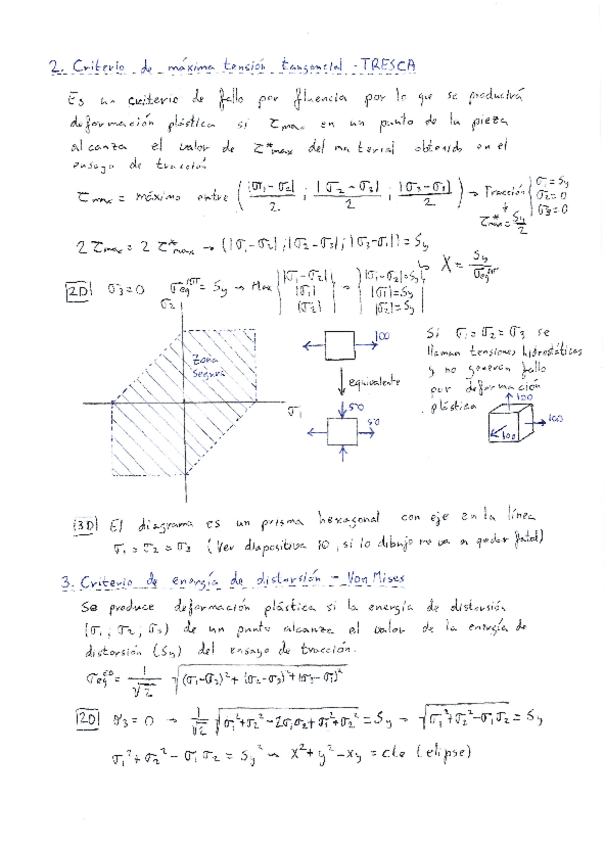 2. Criterio de máxima tensión tangencial - TRESCA
Es un criterio de fallo por fluencia por lo que se producirá
deformación plástica si τmax en un punto de la pieza
alcanza el valor de τ*max del material obtenido en el
ensayo de tracción
τmax = máximo entre (|σ1-σ2|/2 ; |σ2-σ3|/2 ; |σ3-σ1|/2) → Tracción {σ1=Sy σ2=0 σ3=0
τ*max=Sy/2
2τmax = 2τ*max → (|σ1-σ2|;|σ2-σ3|;|σ3-σ1|) = Sy
X = Sy/σeq
2D σ3=0 σeq = Sy → Max {|σ1-σ2| |σ1| |σ2|} → {|σ1-σ2|=Sy |σ1|=Sy |σ2|=Sy}
σ2
Zona
segura
σ1
100
equivalente
50
50
Si σ1=σ2=σ3 se
llaman tensiones hidrostáticas
y no generan fallo
por deformación
plástica
100
100
100
3D El diagrama es un prisma hexagonal con eje en la línea
σ1=σ2=σ3 (Ver diapositiva 10, si lo dibujo me va a quedar fatal)
3. Criterio de energía de distorsión - Von Mises
Se produce deformación plástica si la energía de distorsión
(σ1; σ2; σ3) de un punto alcanza el valor de la energía de
distorsión (Sy) del ensayo de tracción.
σeq = 1/√2 √(σ1-σ2)²+(σ2-σ3)²+(σ3-σ1)²
2D σ3=0 → 1/√2 √σ1²+σ2²-2σ1σ2+σ1²+σ2² = Sy → √σ1²+σ2²-σ1σ2 = Sy
σ1²+σ2²-σ1σ2 = Sy² ~ x²+y²-xy = cte (elipse)